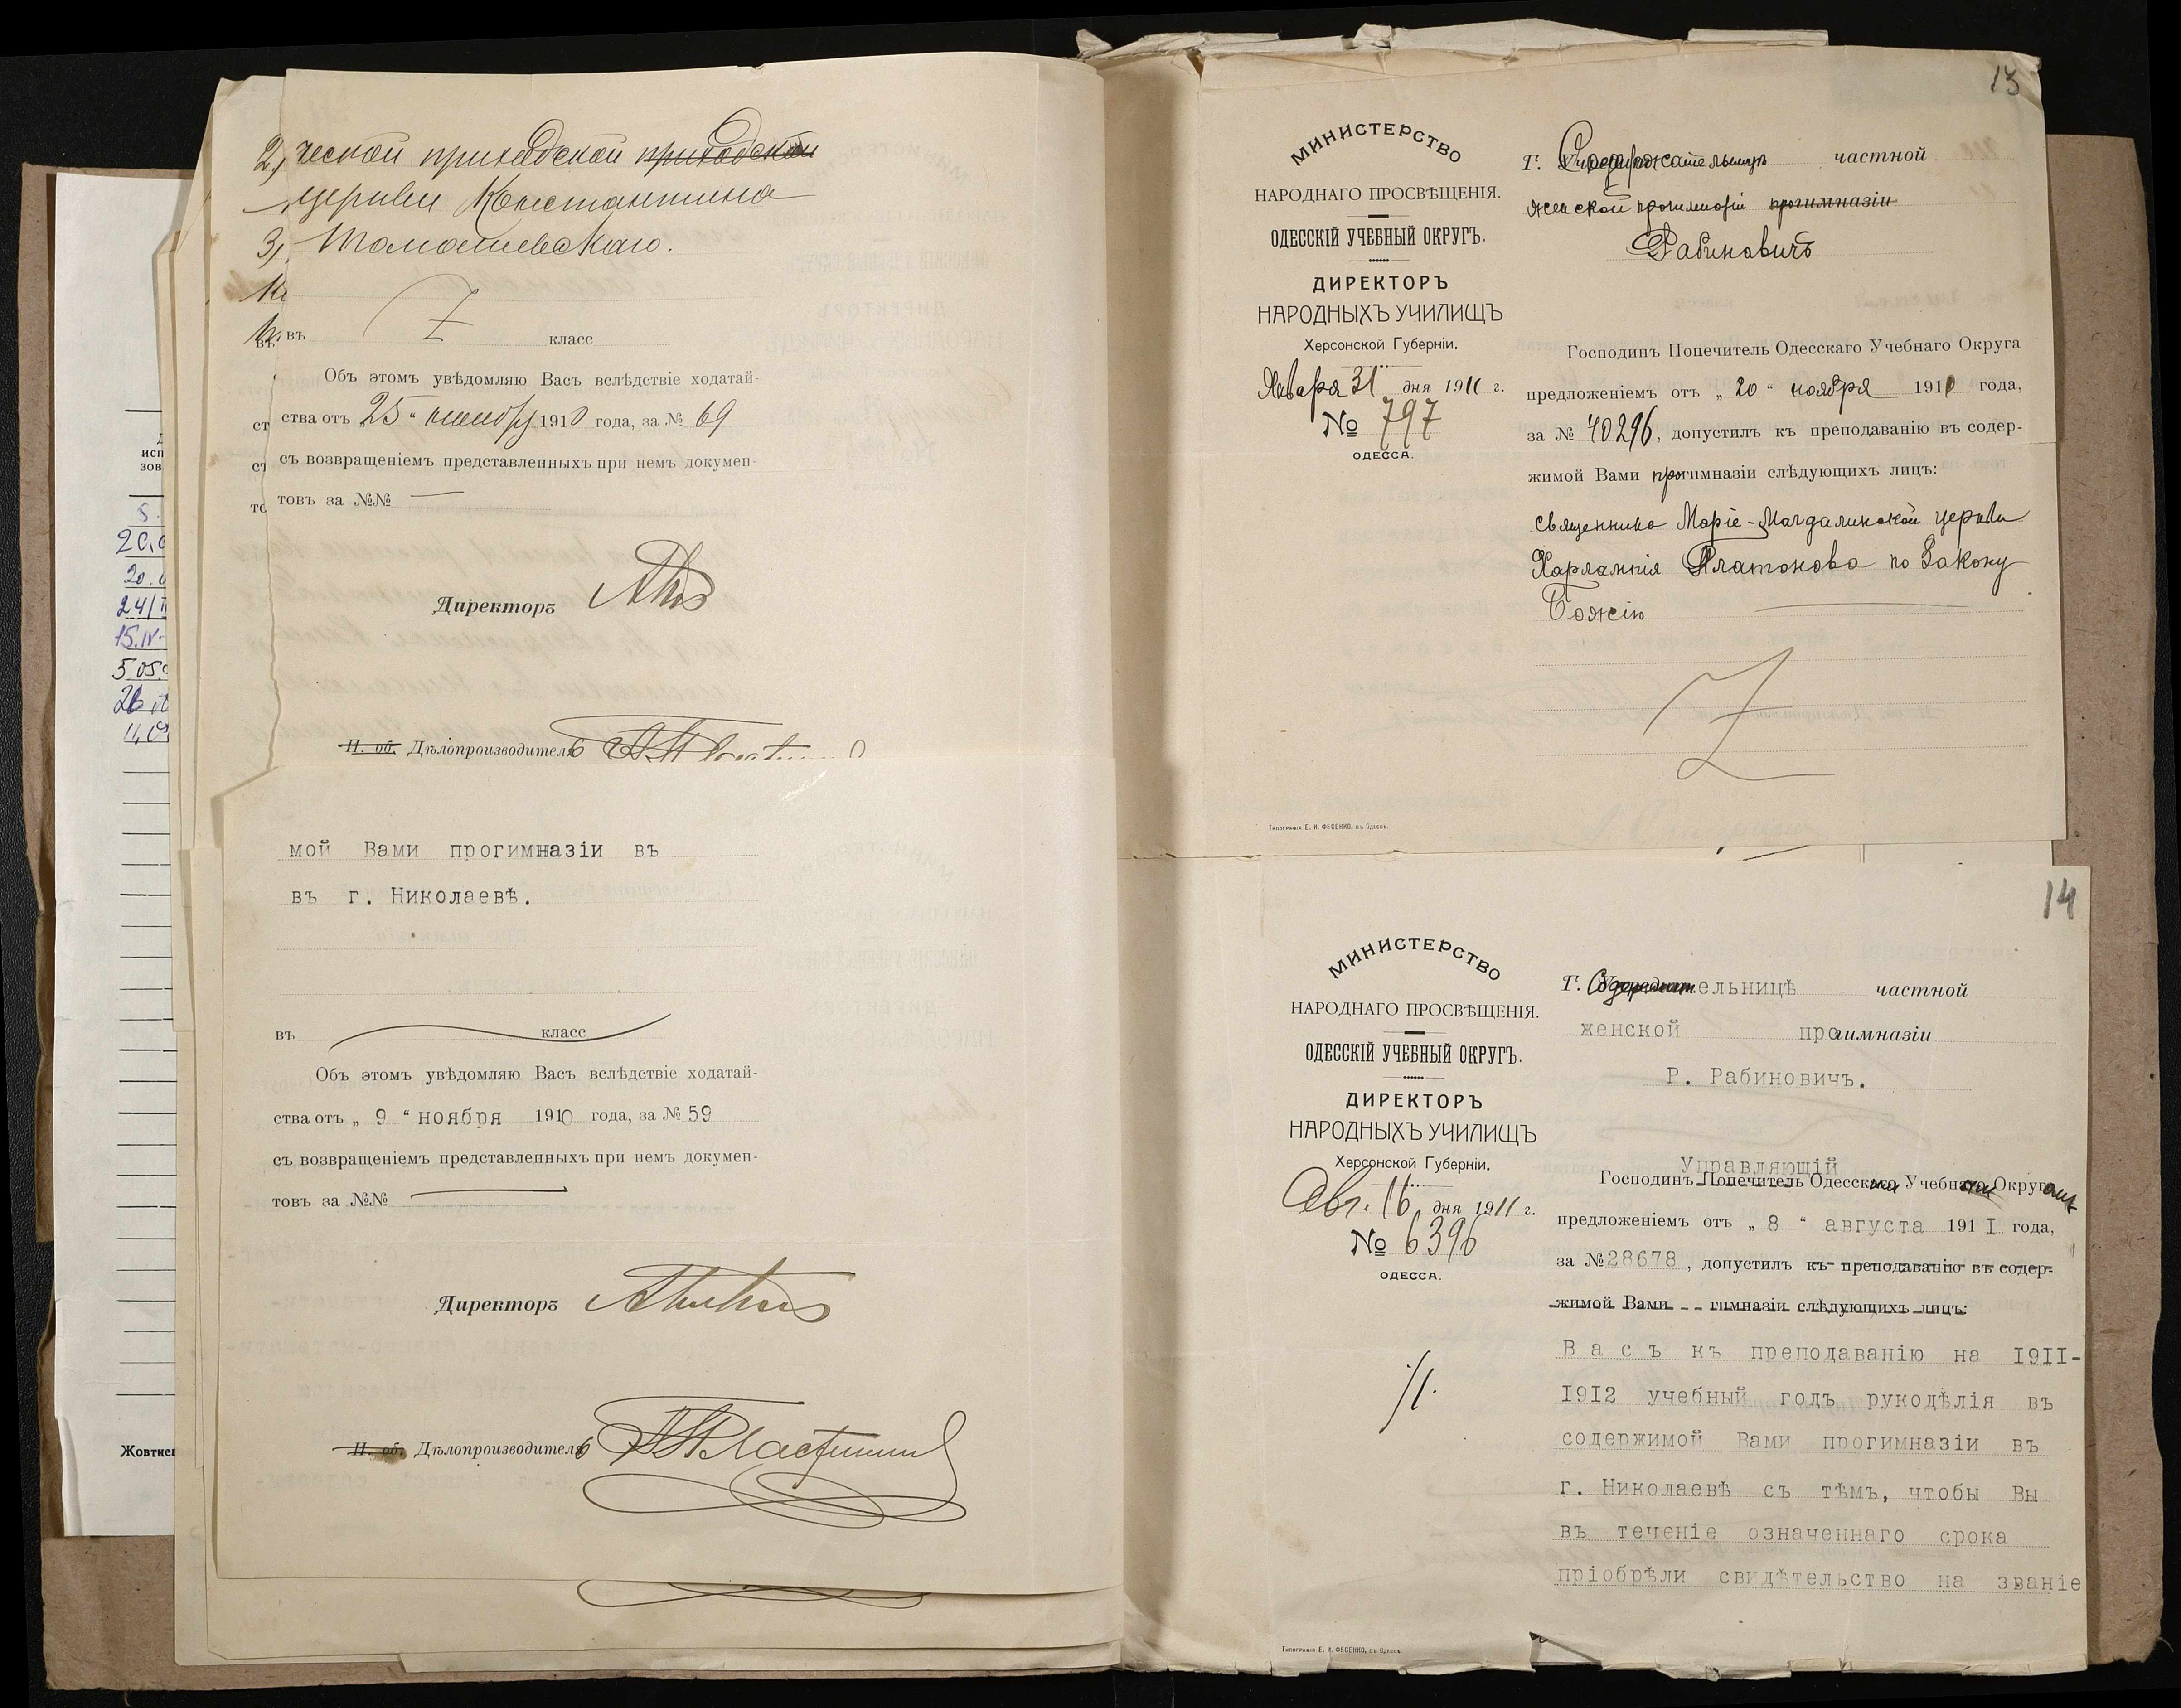 2) ческой приходской приходской
церкви Константина
3) Томашевскаго.
въ класс
Объ этомъ увѣдомляю Васъ вслѣдствіе ходатай-
ства отъ 25 " 1910 года, за № 69
съ возвращеніемъ представленныхъ при немъ докумен-
товъ за №№ —
Директоръ
И. об. Дѣлопроизводитель
мой Вами прогимназіи въ
въ г. Николаевѣ.
въ класс
Объ этомъ увѣдомляю Васъ вслѣдствіе ходатай-
ства отъ „ 9 " ноября 1910 года, за № 59
съ возвращеніемъ представленныхъ при немъ докумен-
товъ за №№ —
Директоръ
И. об. Дѣлопроизводитель
исп
зов
20.0
24/II
15.IV-
5 05.
Жовтнев
13
МИНИСТЕРСТВО
НАРОДНАГО ПРОСВѢЩЕНІЯ.
ОДЕССКІЙ УЧЕБНЫЙ ОКРУГЪ.
ДИРЕКТОРЪ
НАРОДНЫХЪ УЧИЛИЩЪ
Херсонской Губерніи.
Января 31 дня 1911 г.
№ 797
ОДЕССА.
Г. Содержательницѣ частной
женской прогимназіи прогимназіи
Рабиновичъ
Господинъ Попечитель Одесскаго Учебнаго Округа
предложеніемъ отъ „ 20 " ноября 1910 года,
за № 40296, допустилъ къ преподаванію въ содер-
жимой Вами прогимназіи слѣдующихъ лицъ:
священника Маріе-Магдалинской церкви
Харлампія Платонова по Закону
Божію
Типографія Е. И. ФЕСЕНКО, въ Одессѣ.
14
МИНИСТЕРСТВО
НАРОДНАГО ПРОСВѢЩЕНІЯ.
ОДЕССКІЙ УЧЕБНЫЙ ОКРУГЪ.
ДИРЕКТОРЪ
НАРОДНЫХЪ УЧИЛИЩЪ
Херсонской Губерніи.
Авг. 16 дня 1911 г.
№ 6396
ОДЕССА.
Г. Содержательницѣ частной
женской прогимназіи
Р. Рабиновичъ.
Управляющій
Господинъ Попечитель Одесскимъ Учебнымъ Округомъ
предложеніемъ отъ „ 8 " августа 191I года,
за № 28678, допустилъ къ преподаванію въ содер-
жимой Вами гимназіи слѣдующихъ лицъ:
Васъ къ преподаванію на I9II-
I9I2 учебный годъ рукодѣлія въ
содержимой Вами прогимназіи въ
г. Николаевѣ съ тѣмъ, чтобы Вы
въ теченіе означеннаго срока
пріобрѣли свидѣтельство на званіе
Типографія Е. И. ФЕСЕНКО, въ Одессѣ.